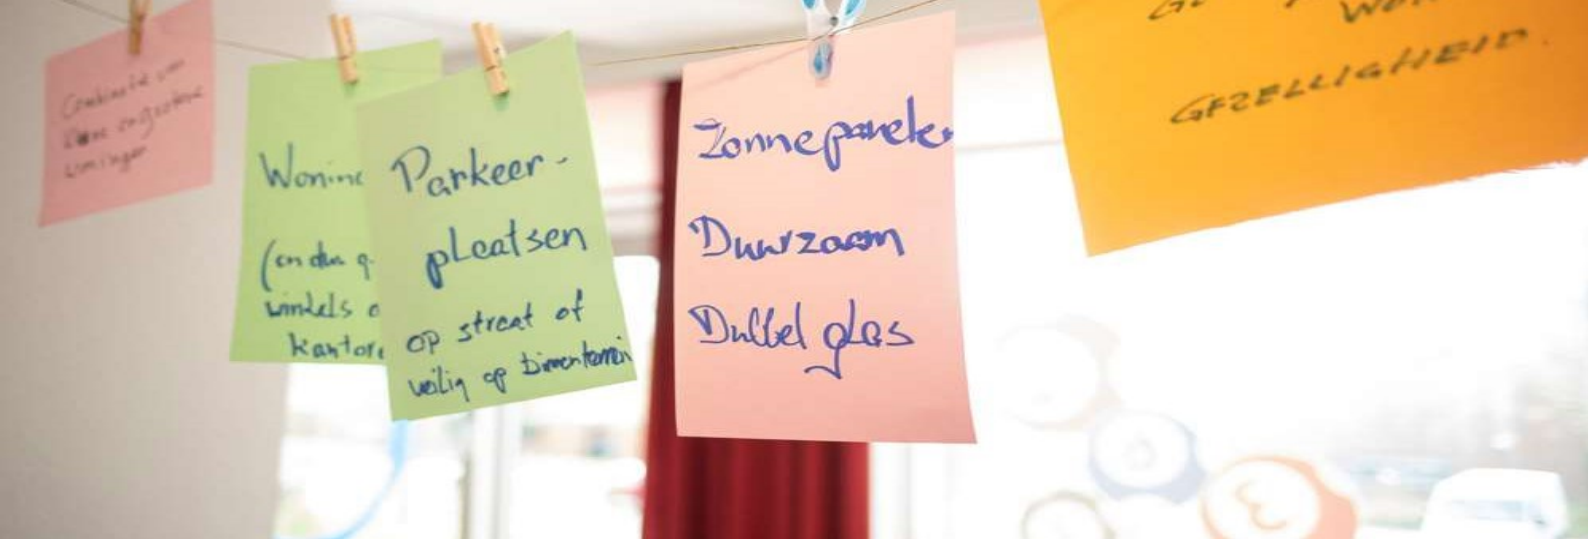 Combinatie van
woningen
Wonin
(en dus g
winkels o
kantore
Parkeer-
plaatsen
op straat of
veilig op binnenterrein
Zonnepanelen
Duurzaam
Dubbel glas
GEZELLIGHEID.
3